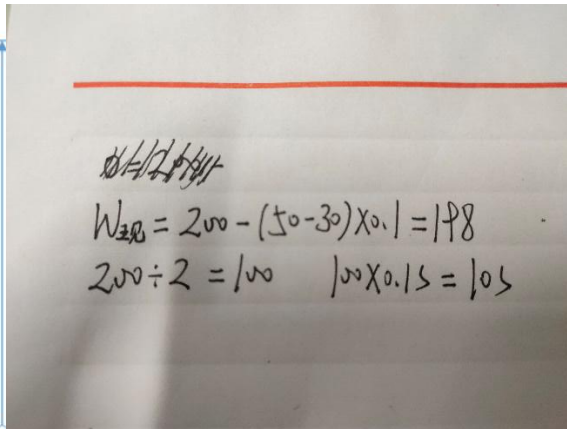 W现 = 200 - (50-30)×0.1 = 198
200÷2 = 100 100×0.15 = 105